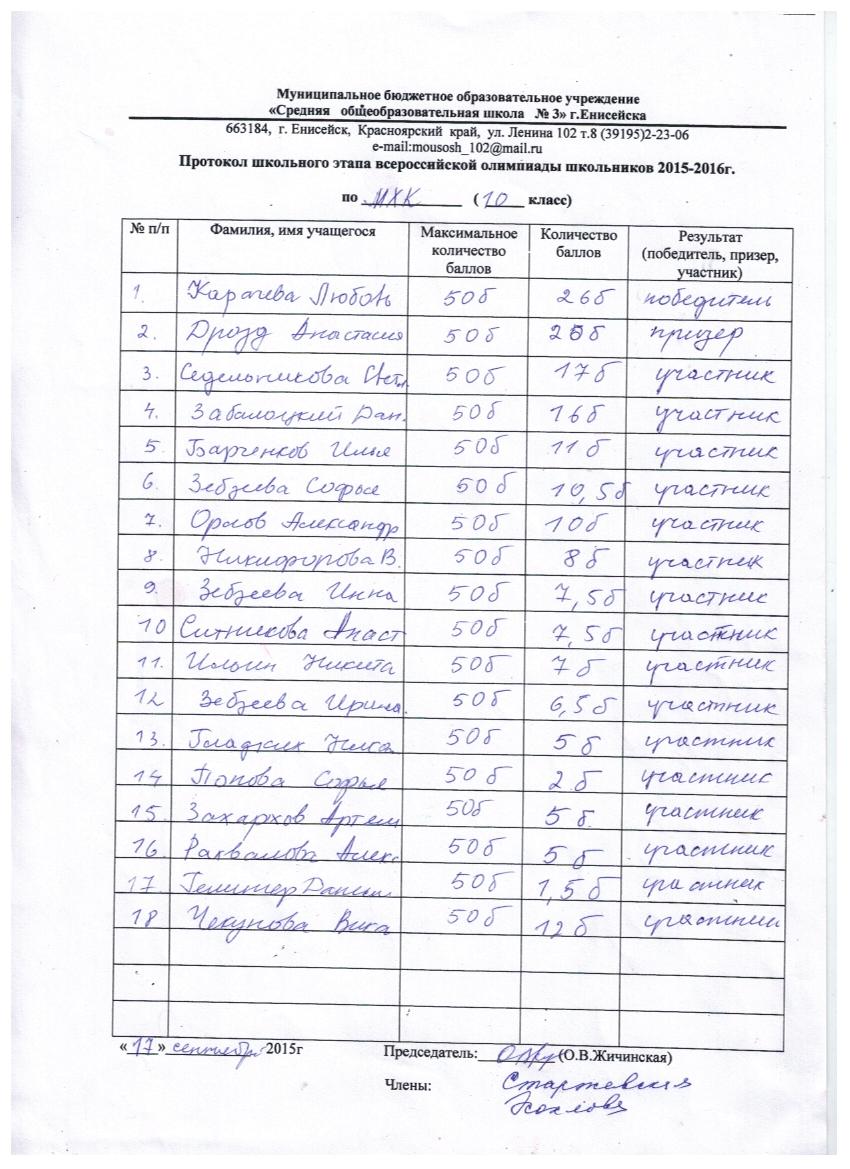 Муниципальное бюджетное образовательное учреждение
«Средняя общеобразовательная школа № 3» г.Енисейска
663184, г. Енисейск, Красноярский край, ул. Ленина 102 т.8 (39195)2-23-06
e-mail:mousosh_102@mail.ru
Протокол школьного этапа всероссийской олимпиады школьников 2015-2016г.
по МХК (10 класс)
№ п/п Фамилия, имя учащегося Максимальное количество баллов Количество баллов Результат (победитель, призер, участник)
1. Карачева Любовь 50б 26б победитель
2. Дрозд Анастасия 50б 25б призер
3. Седельникова 50б 17б участник
4. Забалоцкий Дан. 50б 16б участник
5. Барченков Илья 50б 11б участник
6. Зебзеева Софья 50б 10,5б участник
7. Орлов Александр 50б 10б участник
8. Никифорова В. 50б 8б участник
9. Зебзеева Инна 50б 7,5б участник
10 Ситникова Анаст 50б 7,5б участник
11. Ильин Никита 50б 7б участник
12 Зебзеева Ирина. 50б 6,5б участник
13. Гладких Ника 50б 5б участник
14 Попова Софья 50б 2б участник
15. Захархов Артем 50б 5б. участник
16. Алекс 50б 5б участник
17. 50б 1,5б участник
18 Чекунова Вика 50б 12б участник
«17» сентября 2015г Председатель: (О.В.Жичинская)
Члены: